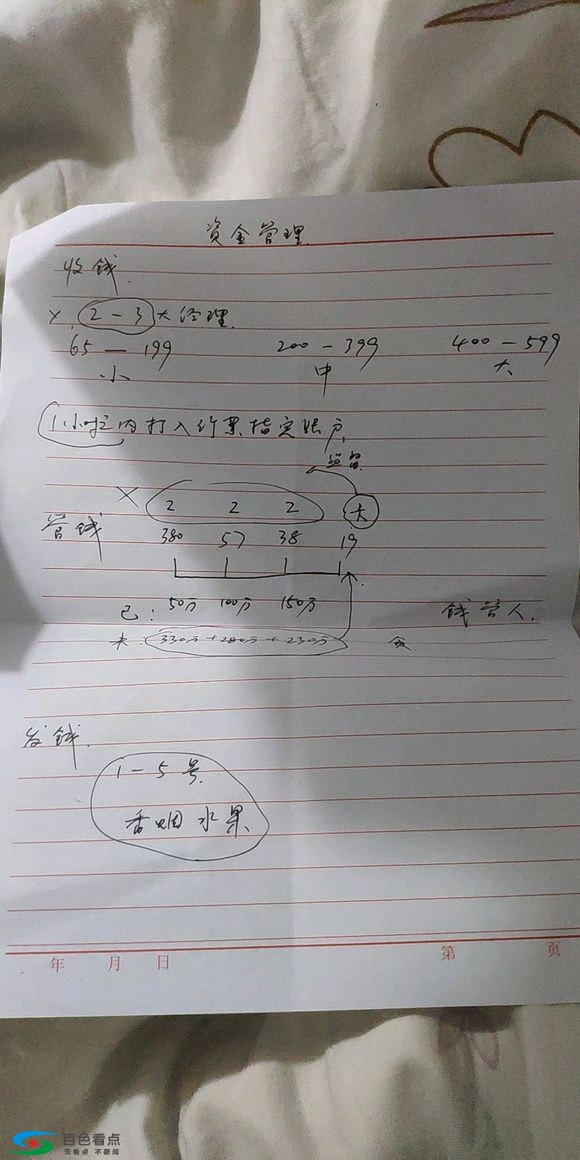 资金管理
收钱.
× 2-3 大经理
65 — 199 200-399 400-599
小 中 大
1小时内打入行累指定账户
监督
× 2 2 2 大
管钱 380 57 38 19
已: 50万 100万 150万 钱管人.
未: 330万+280万+230万
发钱.
1-5号
香烟 水果
年 月 日 第 页
百色看点
先看点 不新闻